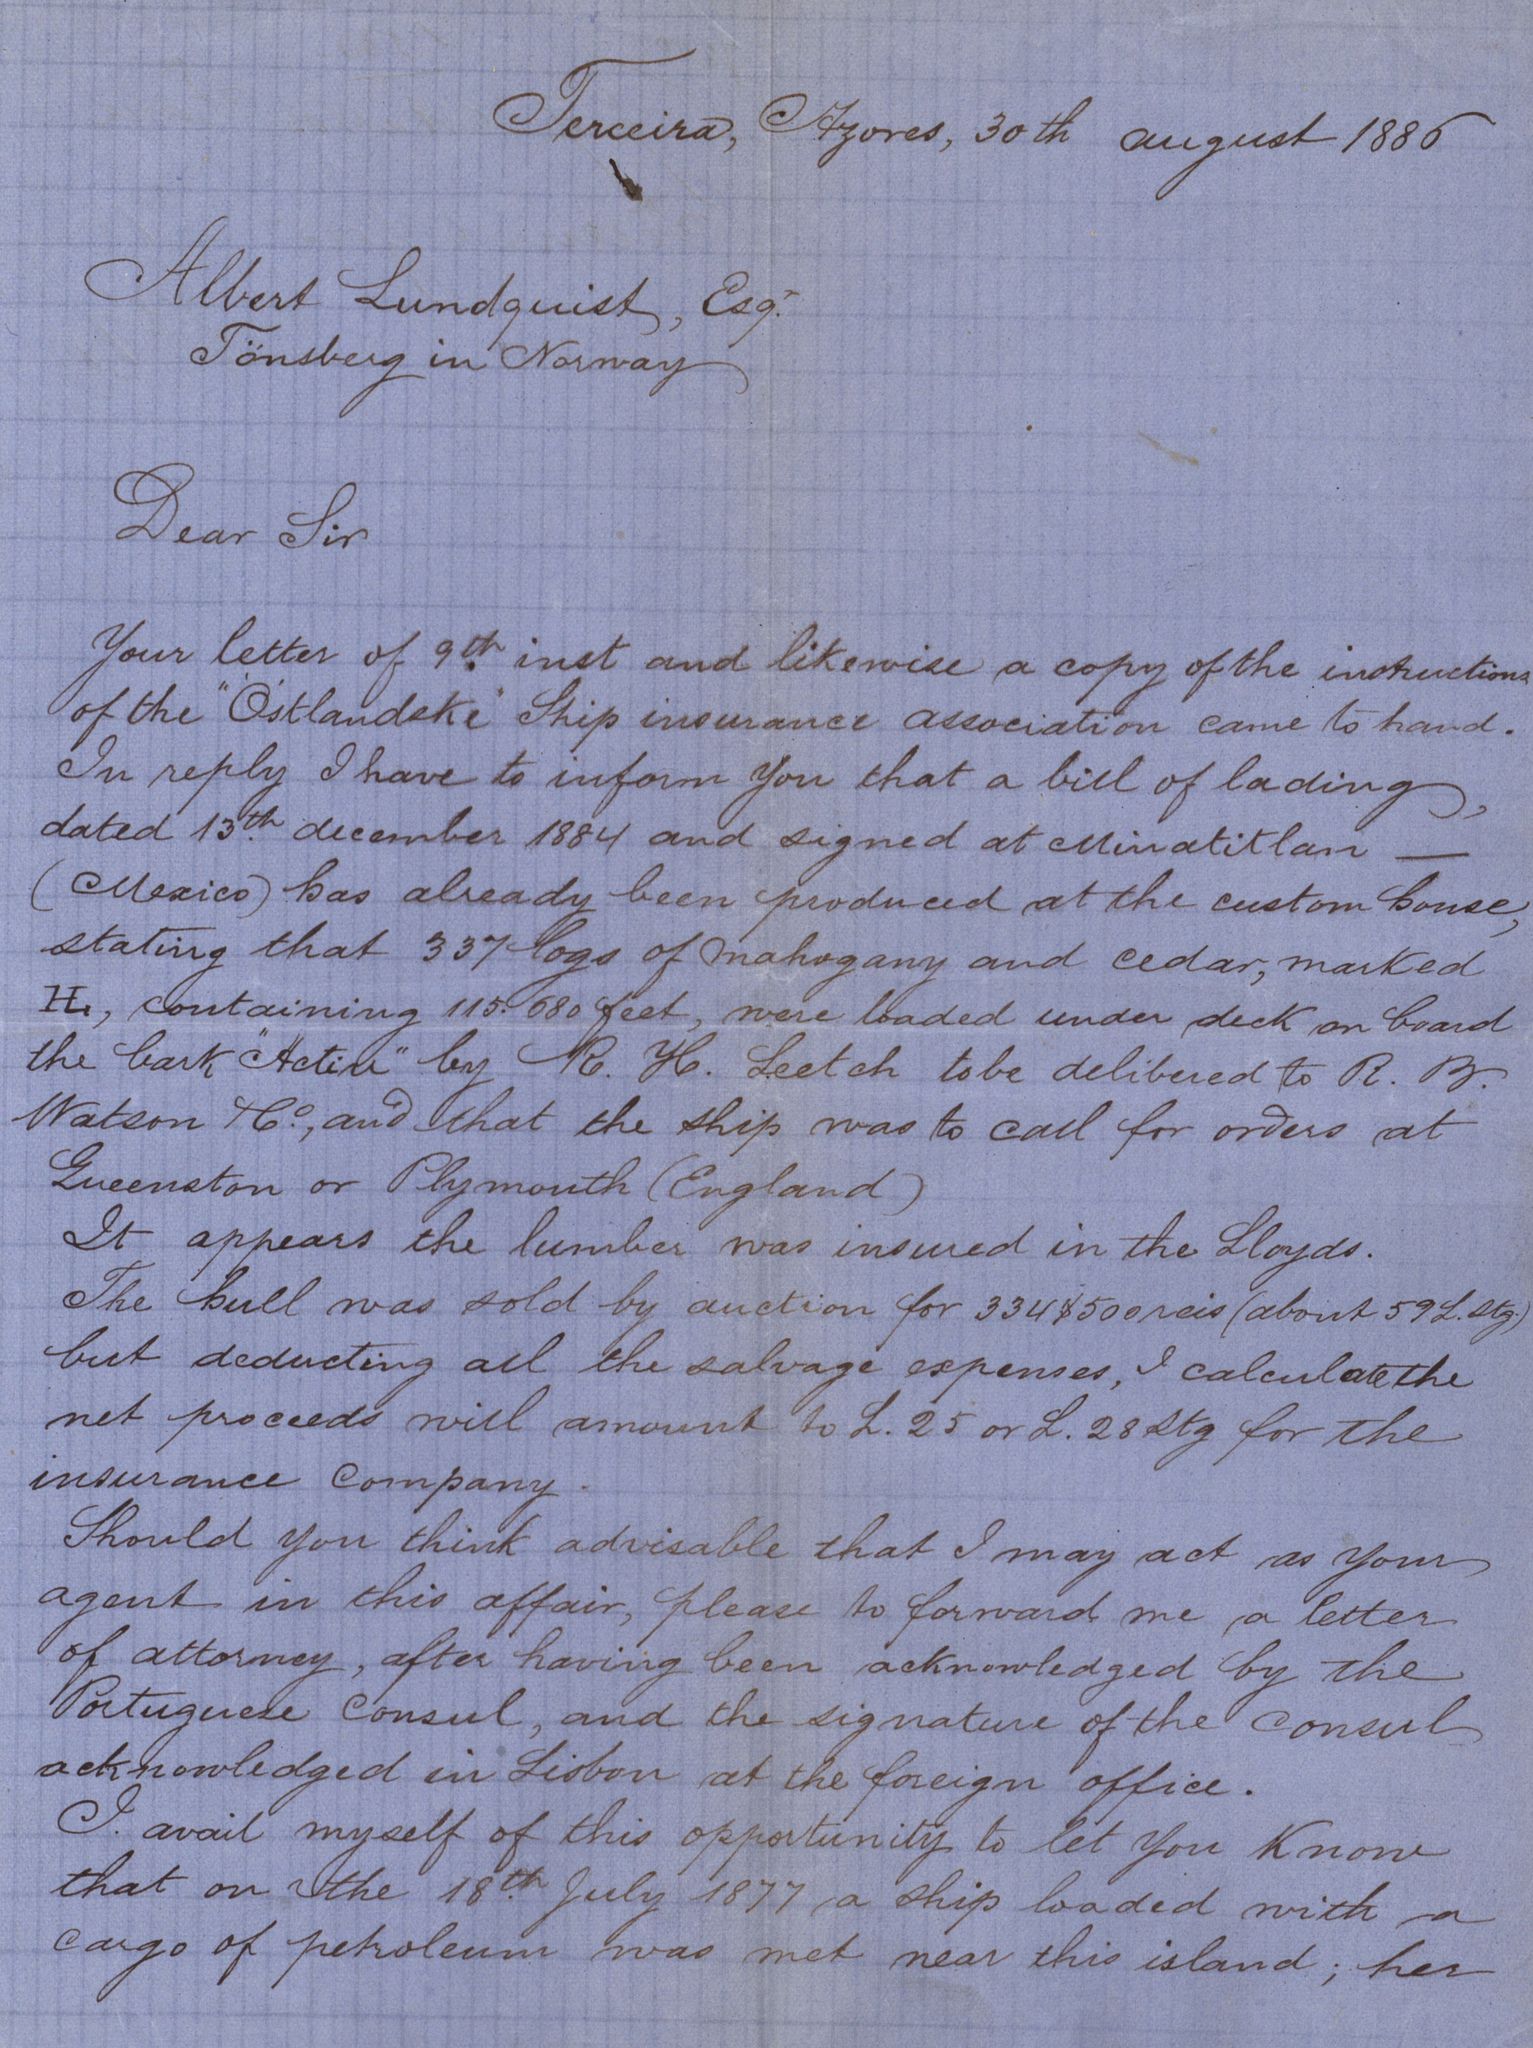 Terceira, Azores, 30th august 1886
Albert Lundquist, Esq.
Tönsberg in Norway
Dear Sir
Your letter of 9th. inst and likewise a copy of the instructions
of the "Östlandske" Ship insurance association came to hand.
In reply I have to inform You that a bill of lading,
dated 13th. december 1884 and signed at Minatitlan —
(Mexico) has already been produced at the custom house,
stating that 337 logs of mahogany and cedar, marked
H, containing 115.680 feet, were loaded under deck on board
the bark "Activ" by R. H. Leetch to be delibered to R. B.
Watson & Co., and that the ship was to call for orders at
Queenston or Plymouth (England)
It appears the lumber was insured in the Lloyds.
The hull was sold by auction for 334$500 reis (about 59 L. Stg.)
but deducting all the salvage expenses, I calculate the
net proceeds will amount to L. 25 or L. 28 Stg for the
insurance Company.
Should You think advisable that I may act as Your
agent in this affair, please to forward me a letter
of attorney, after having been acknowledged by the
Portuguese Consul, and the signature of the Consul
acknowledged in Lisbon at the foreign office.
I avail myself of this opportunity to let You Know
that on the 18th. July 1877 a ship loaded with a
cargo of petroleum was met near this island; her